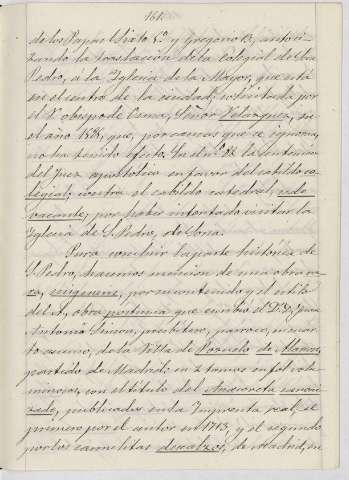 161.
de los Papas Sixto 5º y Gregorio 13, autori-
zando la traslación de la Colegial de San
Pedro, a la Iglesia de la Mayor, que está
en el centro de la ciudad, solicitada por
el Sr obispo de Osma, Señor Velázquez, en
el año 1586, que, por causas que se ignoran,
no ha tenido efecto. En el nº la sentencia
del juez apostólico en favor del cabildo co-
legial, contra el cabildo catedral, sede
vacante, por haber intentado visitar la
Iglesia de S. Pedro, de Soria.
Para concluir la parte histórica de
S. Pedro, hacemos mención de una obra ra-
ra, por su contenido y el estilo
del A., obra póstuma que escribió el D. Juan
Antonio Simon, presbítero, párroco,
de la Villa de Pozuelo de Alarcon,
partido de Madrid: en 2 tomos en fol. volu-
minosos, con el título del
publicados en la Imprenta real, el
primero por el autor en 1713, y el segundo
por los carmelitas descalzos, de Madrid, en